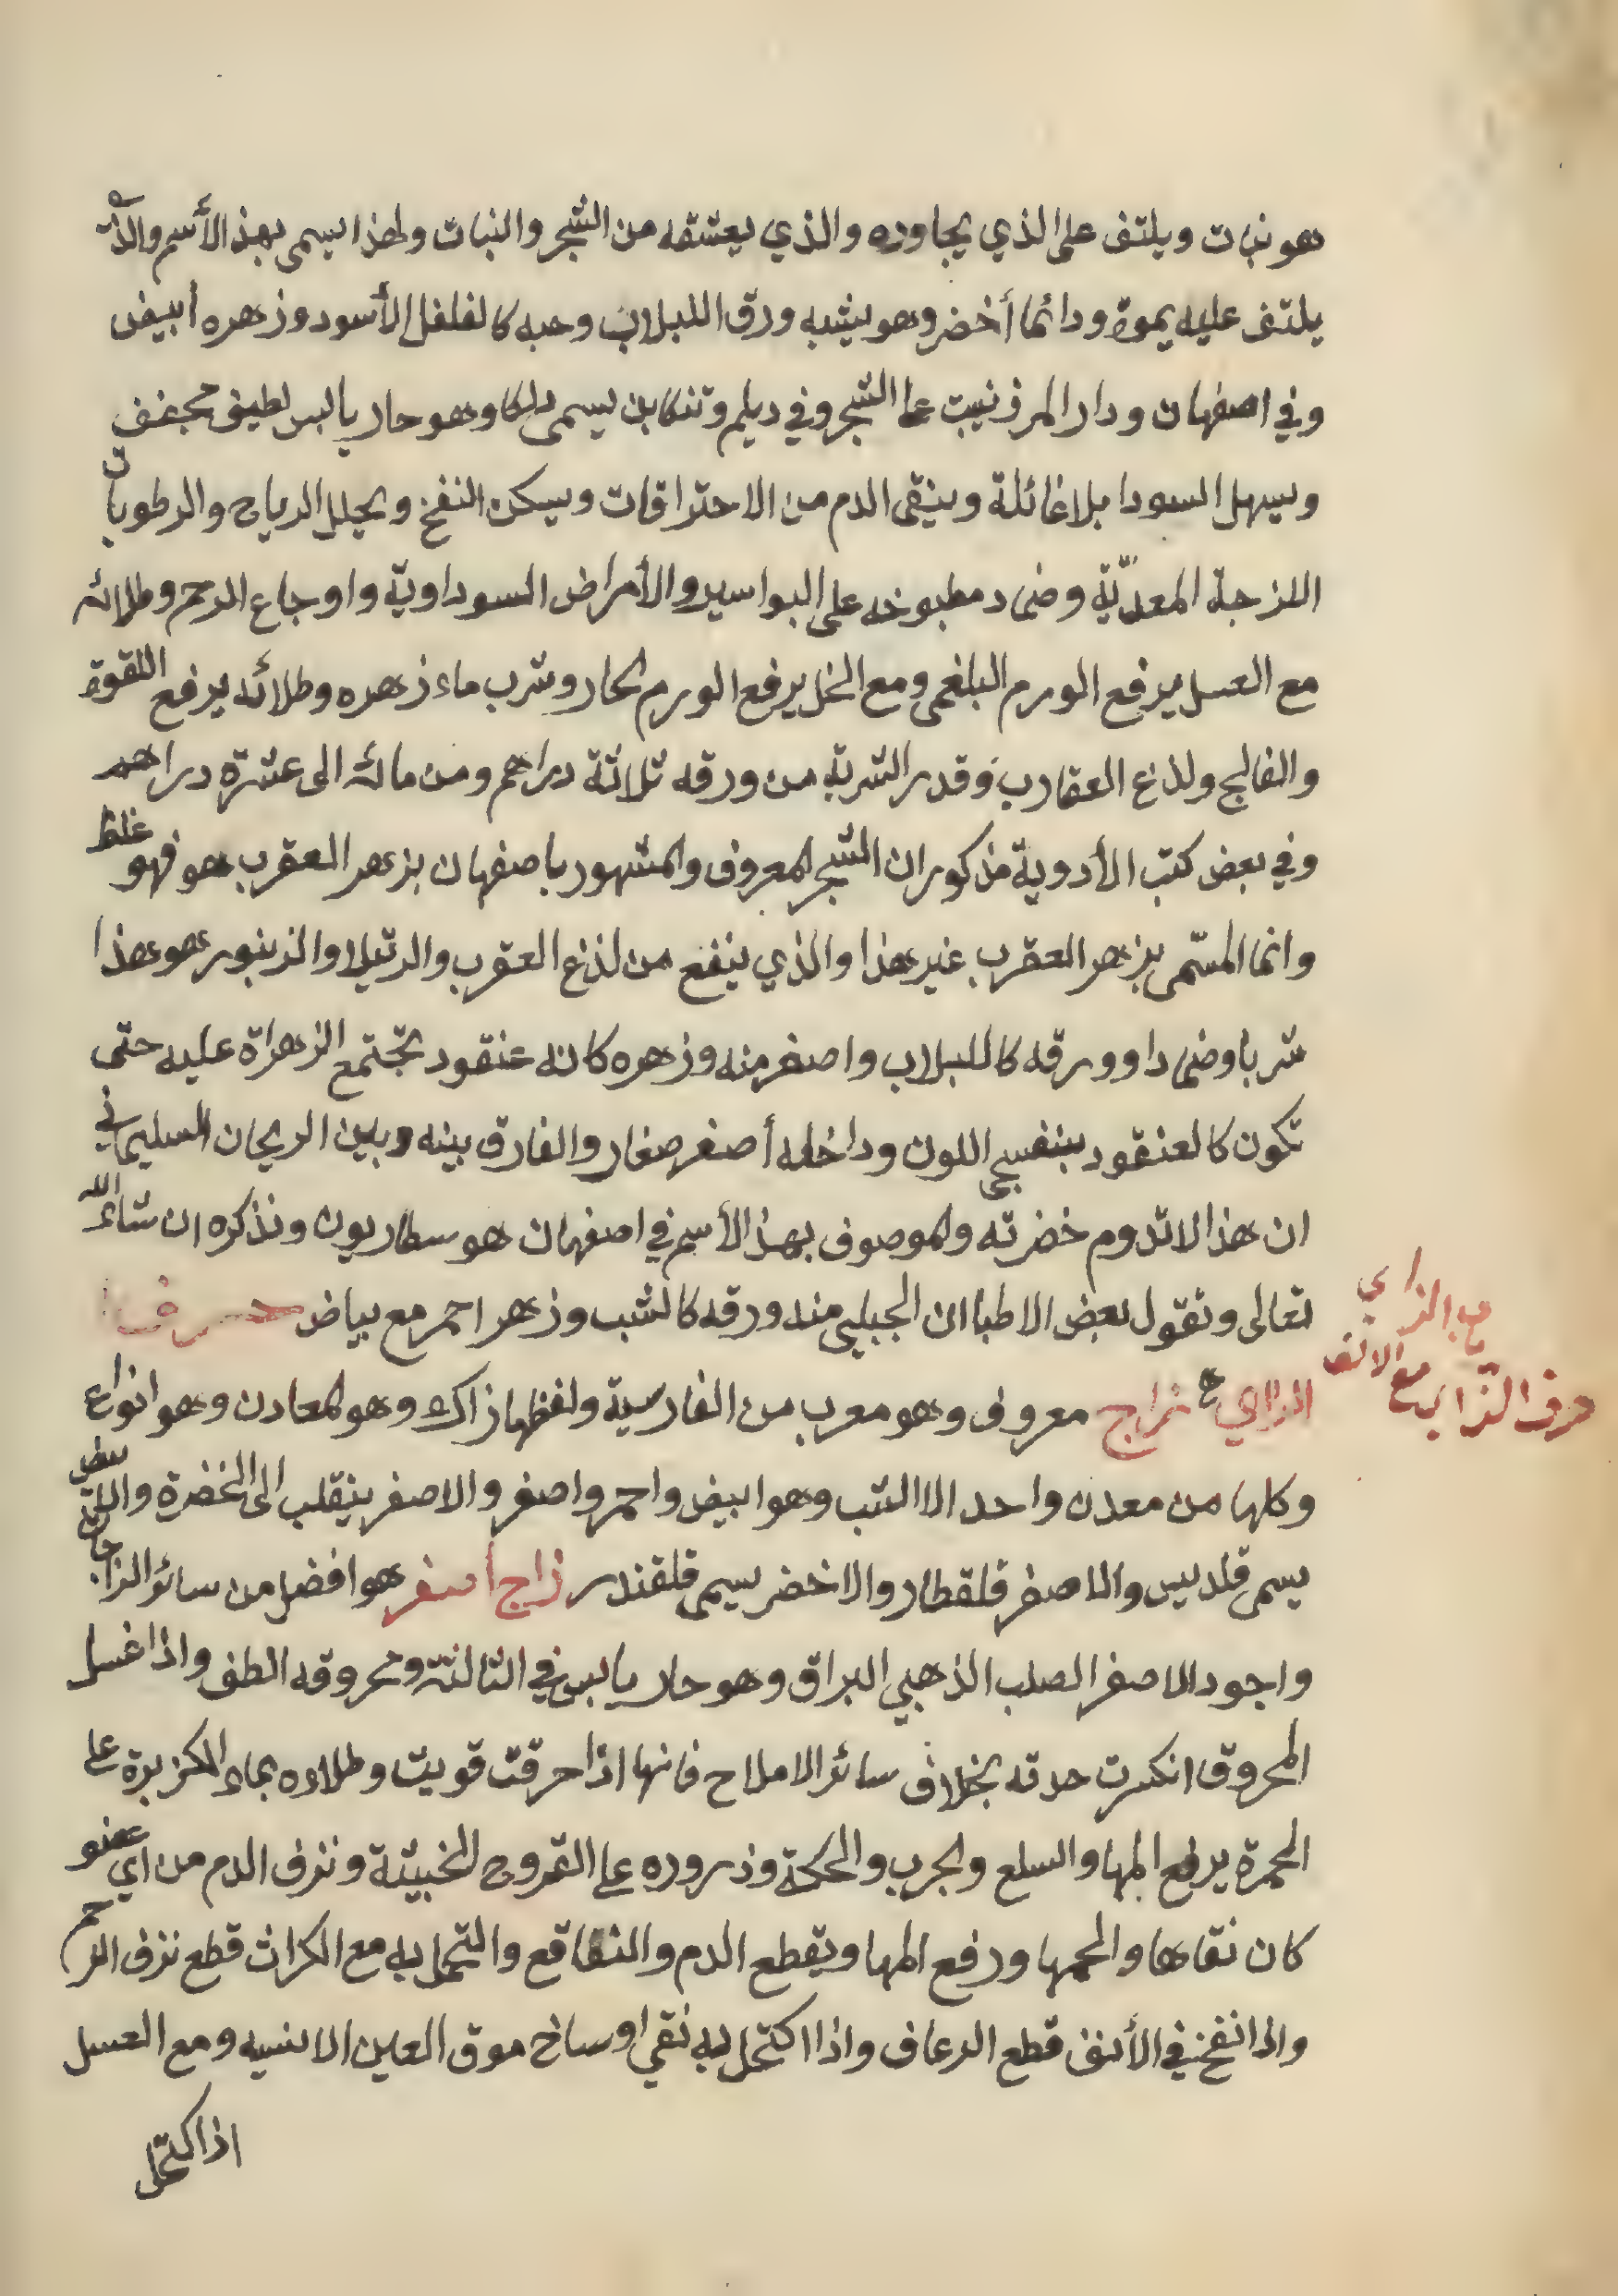 هو نبات ويلتف على الذي يجاوره والذي يعشقه من الشجر والنبات ولهذا يسمى بهذ الأسم والذي
يلتف عليه يموت ودائما أخضر وهو يشبه ورق اللبلاب وحبه كالفلفل الأسود وزهره أبيض
وفي اصفهان ودار المرز نيبت على الشجر وفي ديلم وتنكابن يسمى دلكا وهو حار يابس لطيف مجفف
ويسهل السودا بلا غائلة وينقى الدم من الاحتراقات ويسكن النفخ ويحلل الرياح والرطوبات
اللزجة المعديّة وضماد مطبوخه على البواسير والأمراض السوداوية واوجاع الرحم وطلائه
مع العسل يرفع الورم البلغمى ومع الخل يرفع الورم الحار وشرب ماء زهره وطلائه يرفع اللقوة
والفالج ولذع العقارب وقدر الشربة من ورقه ثلاثة دراهم ومن مائه الى عشرة دراهم
وفي بعض كتب الأدوية مذكور ان الشجر المعروف والمشهور باصفهان بزهر العقرب هو فهو غلط
وانما المسّمى بزهر العقرب غير هذا والذي ينفع من لذع العقرب والرتيلا والزنبور هو هذا
شربا وضمادا وورقه كاللبلاب واصغر منه وزهره كانه عنقود تجتمع الزهراة عليه حتى
تكون كالعنقود بنفسجى اللون وداخله أصغر صغار والفارق بينه وبين الريحان السليماني
ان هذا لا تدوم خضرته والموصوف بهذ الأسم في اصفهان هو سطاريون ونذكره ان شاء الله
تعالى وتقول بعض الاطبا ان الجبلي منه ورقه كالشب وزهر احمر مع بياض حرف
الزاي زاج معروف وهو معرب من الفارسية ولفظها زاك وهو لمعادن وهو انواع
حرف الزاي مع الالف
وكلها من معدن واحد الا الشب وهو ابيض واحمر واصفر والاصفر ينقلب الى الخضرة والابيض
يسمى قلديس والاصفر قلقطار والاخضر يسمى قلقندر زاج أصفر هو افضل من سائر الزاجات
واجود الاصفر الصلب الذهبي البراق وهو حار يابس في الثالثة ومحروقه الطف واذا غسل
المحروق انكسرت حدته بخلاف سائر الاملاح فانها اذا حرقت قويت وطلاوه بماء الكزبرة على
الحمرة يرفع المها والسلع والجرب والحكة وذروره على القروح الخبيثة ونزف الدم من اي عضو
كان نقاها والحمها ورفع المها ويقطع الدم والنقاقع والتحمل به مع الكراث قطع نزف الرحم
واذا نفخ في الأنف قطع الرعاف واذا اكتحل به نقى اوساخ موق العين الانسيه ومع العسل
اذا كتحل